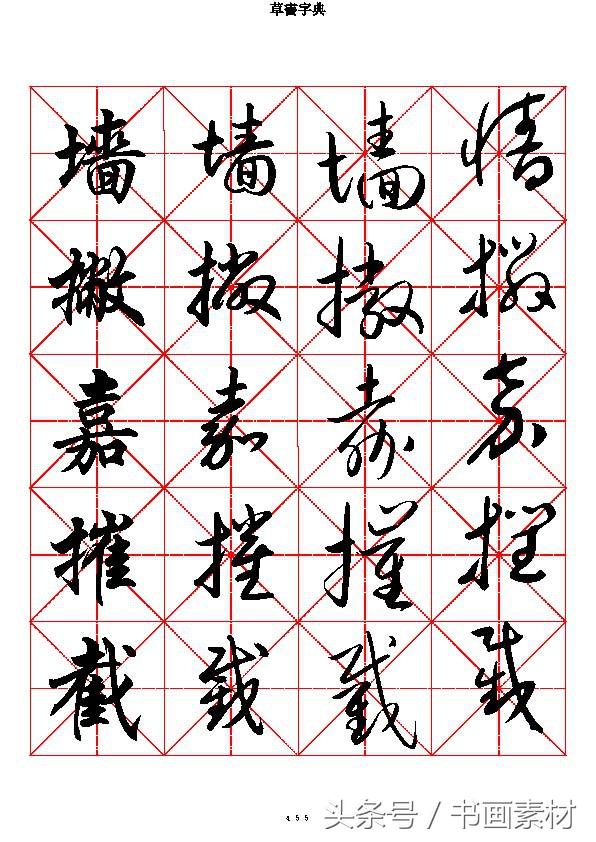 草書字典
墙 墙 墙 墙
撇 撇 撇 撇
嘉 嘉 嘉 嘉
摧 摧 摧 摧
截 截 截 截
455
头条号 / 书画素材